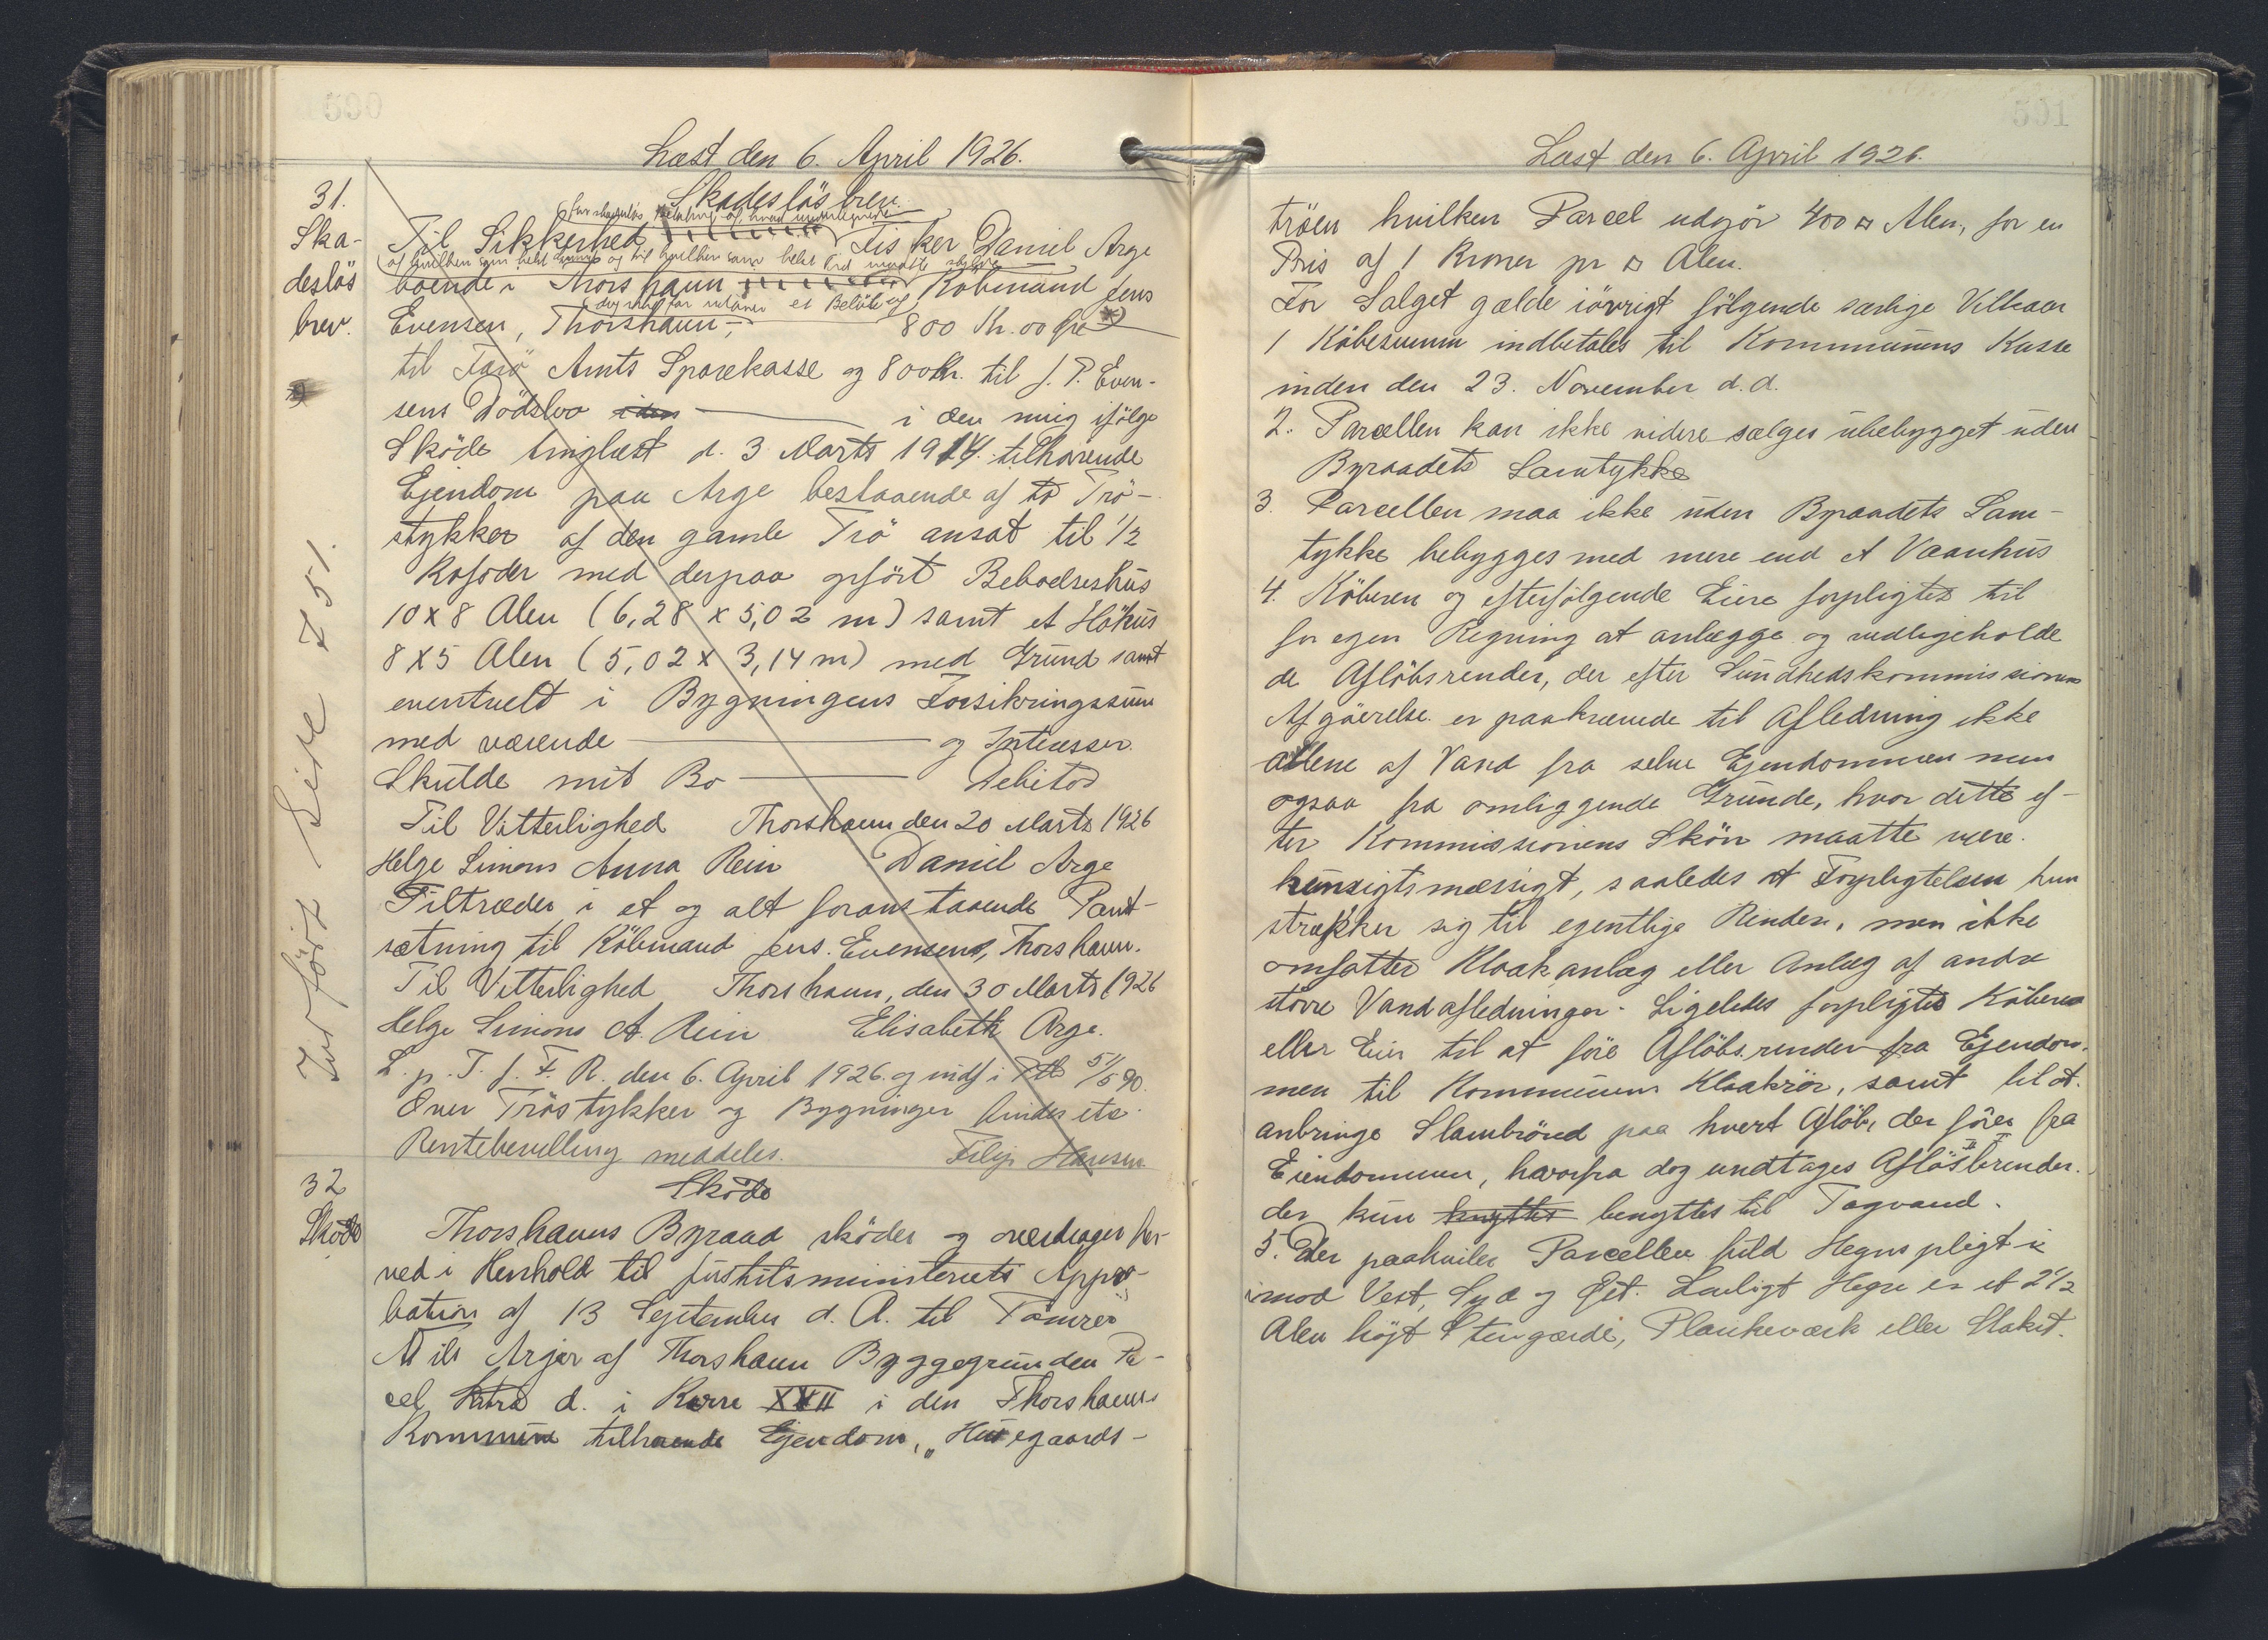 590
Læst den 6. April 1926.
31.
Skadesløsbrev.
Ska-
desløs
brev.
for skadesløs Betaling af hvad undertegnede
Til Sikkerhed Fisker Daniel Arge
af hvilken som helst Grund og til hvilken som helst Tid maatte skylde
boende i Thorshavn Købmand Jens
dog ikke for udover et Beløb af
Evensen, Thorshavn 800 Kr. 00 Øre
til Færø Amts Sparekasse og 800 Kr. til J. P. Even-
sens Dødsbo iden i den mig ifølge
Sköde tinglæst d. 3 Marts 1914. tilhørende
Ejendom paa Arge bestaaende af to Trö-
stykker af den gamle Trö ansat til 1/2
Kofoder med derpaa opført Beboelseshus
10 x 8 Alen (6,28 x 5,02 m) samt et Höhus
8 x 5 Alen (5,02 x 3,14 m) med Grund samt
eventuelt i Bygningens Forsikringssum
med værende og Interesser.
Skulde mit Bo Debitor
Til Vitterlighed Thorshavn den 20 Marts 1926
Helge Simons Anna Rein Daniel Arge
Tiltræder i et og alt foranstaaende Pant-
sætning til Købmand Jens Evensens, Thorshavn.
Til Vitterlighed Thorshavn, den 30 Marts 1926
Helge Simons A. Rein Elisabeth Arge.
L. p. T. f. F. R. den 6. April 1926. og indf i Ptb 5/590.
Over Tröstykker og Bygninger findes etc.
Rentebevilling meddeles. Filip Hansen
Indført Side 251.
32
Sköde
Sköde
Thorshavns Byraad sköder og overdrager her-
ved i Henhold til Justitsministeriets Appro-
bation af 13 September d. A. til Tömrer
Nils Arger af Thorshavn Byggegrunden Pa-
cel Litra d. i Karre XVII i den Thorshavns
Kommune tilhørende Ejendom, "Husegaards-
591
Læst den 6. April 1926.
tröen hvilken Parcel udgör 400 □ Alen, for en
Pris af 1 Kroner pr □ Alen.
For Salget gælde iövrigt fölgende særlige Vilkaar
1 Köbesummen indbetales til Kommunens Kasse
inden den 23. November d. d.
2. Parcellen kan ikke videre sælges ubebygget uden
Byraadets Samtykke
3. Parcellen maa ikke uden Byraadets Sam-
tykke bebygges med mere end et Vaanhus
4. Köberen og efterfölgende Eiere forpligtes til
for egen Regning at anlægge og vedligeholde
de Aflöbsrender, der efter Sundhedskommissionens
Afgöerelse er paakrævede til Afledning ikke
allene af Vand fra selve Ejendommen men
ogsaa fra omliggende Grunde, hvor dette ef-
ter Kommissionens Skön maatte være
hensigtsmæssigt, saaledes at Forpligtelsen kun
strækker sig til egentlige Render, men ikke
omfatter Kloakanlæg eller Anlæg af andre
större Vandafledninger. Ligeledes forpligtes Köberen
eller Eier til at före Aflöbsrender fra Ejendom-
men til Kommunens Kloakrör, samt til at
anbringe Slambrönd paa hvert Aflöb, der förer fra
Eiendommen, hvorfra dog undtages Aflöbsrender
der kun knyttes benyttes til Tagvand.
5. Der paahviler Parcellen fuld Hegnspligt i
imod Vest, Syd og Öst. Lovligt Hegn er et 2 1/2
Alen höjt Stengærde, Plankeværk eller Stakit.